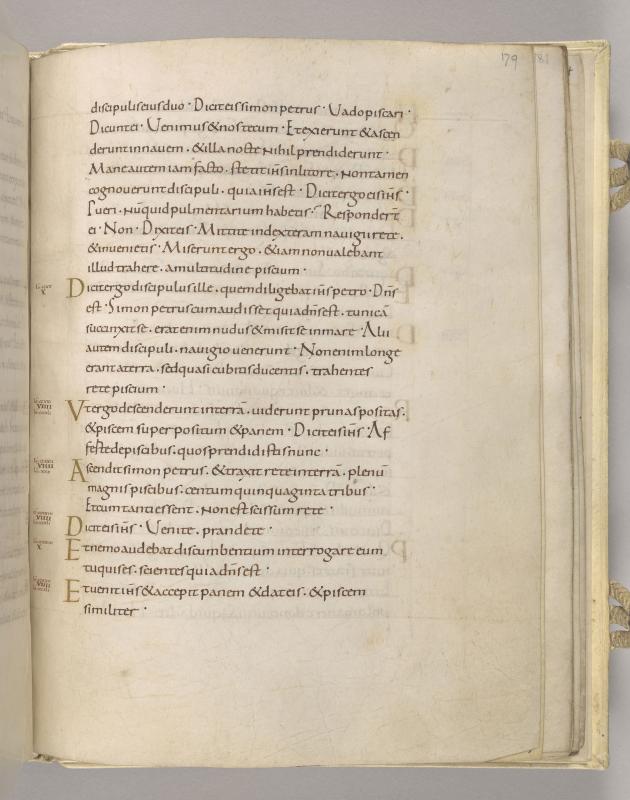 179
181
discipuli eius duo · Dicit eis simon petrus · Uado piscari ·
Dicunt ei · Uenimus & nos tecum · Et exierunt & ascen
derunt in nauem · & illa nocte nihil prendiderunt ·
Mane autem iam facto · stetit ih̅s in litore · Non tamen
cognouerunt discipuli · quia ih̅s est · Dicit ergo eis ih̅s ·
Pueri · nu̅quid pulmentarium habetis · Respondert̅
ei · Non · Dixit eis · Mittite in dexteram nauigii rete ·
& inuenietis · Miserunt ergo · & iam non ualebant
illud trahere · a multitudine piscium ·
Dicit ergo discipulus ille · quem diligebat ih̅s petro · Dn̅s
est · Simon petrus cum audisset quia dn̅s est · tunica̅
succinxit se · erat enim nudus & misit se in mare · Alii
autem discipuli · nauigio uenerunt · Non enim longe
erant a terra · sed quasi cubitis ducentis · trahentes
rete piscium ·
Vt ergo descenderunt in terra̅ · uiderunt prunas positas ·
& piscem superpositum & panem · Dicit eis ih̅s · Af
ferte de piscibus · quos prendidistis nunc ·
Ascendit simon petrus · & traxit rete in terra̅ · plenu̅
magnis piscibus · centum quinquaginta tribus ·
Et cum tanti essent · non est scissum rete ·
Dicit eis ih̅s · Uenite · prandete ·
Et nemo audebat discumbentium interrogare eum
tu quis es · scientes quia dn̅s est ·
Et uenit ih̅s & accepit panem & dat eis · & piscem
similiter ·